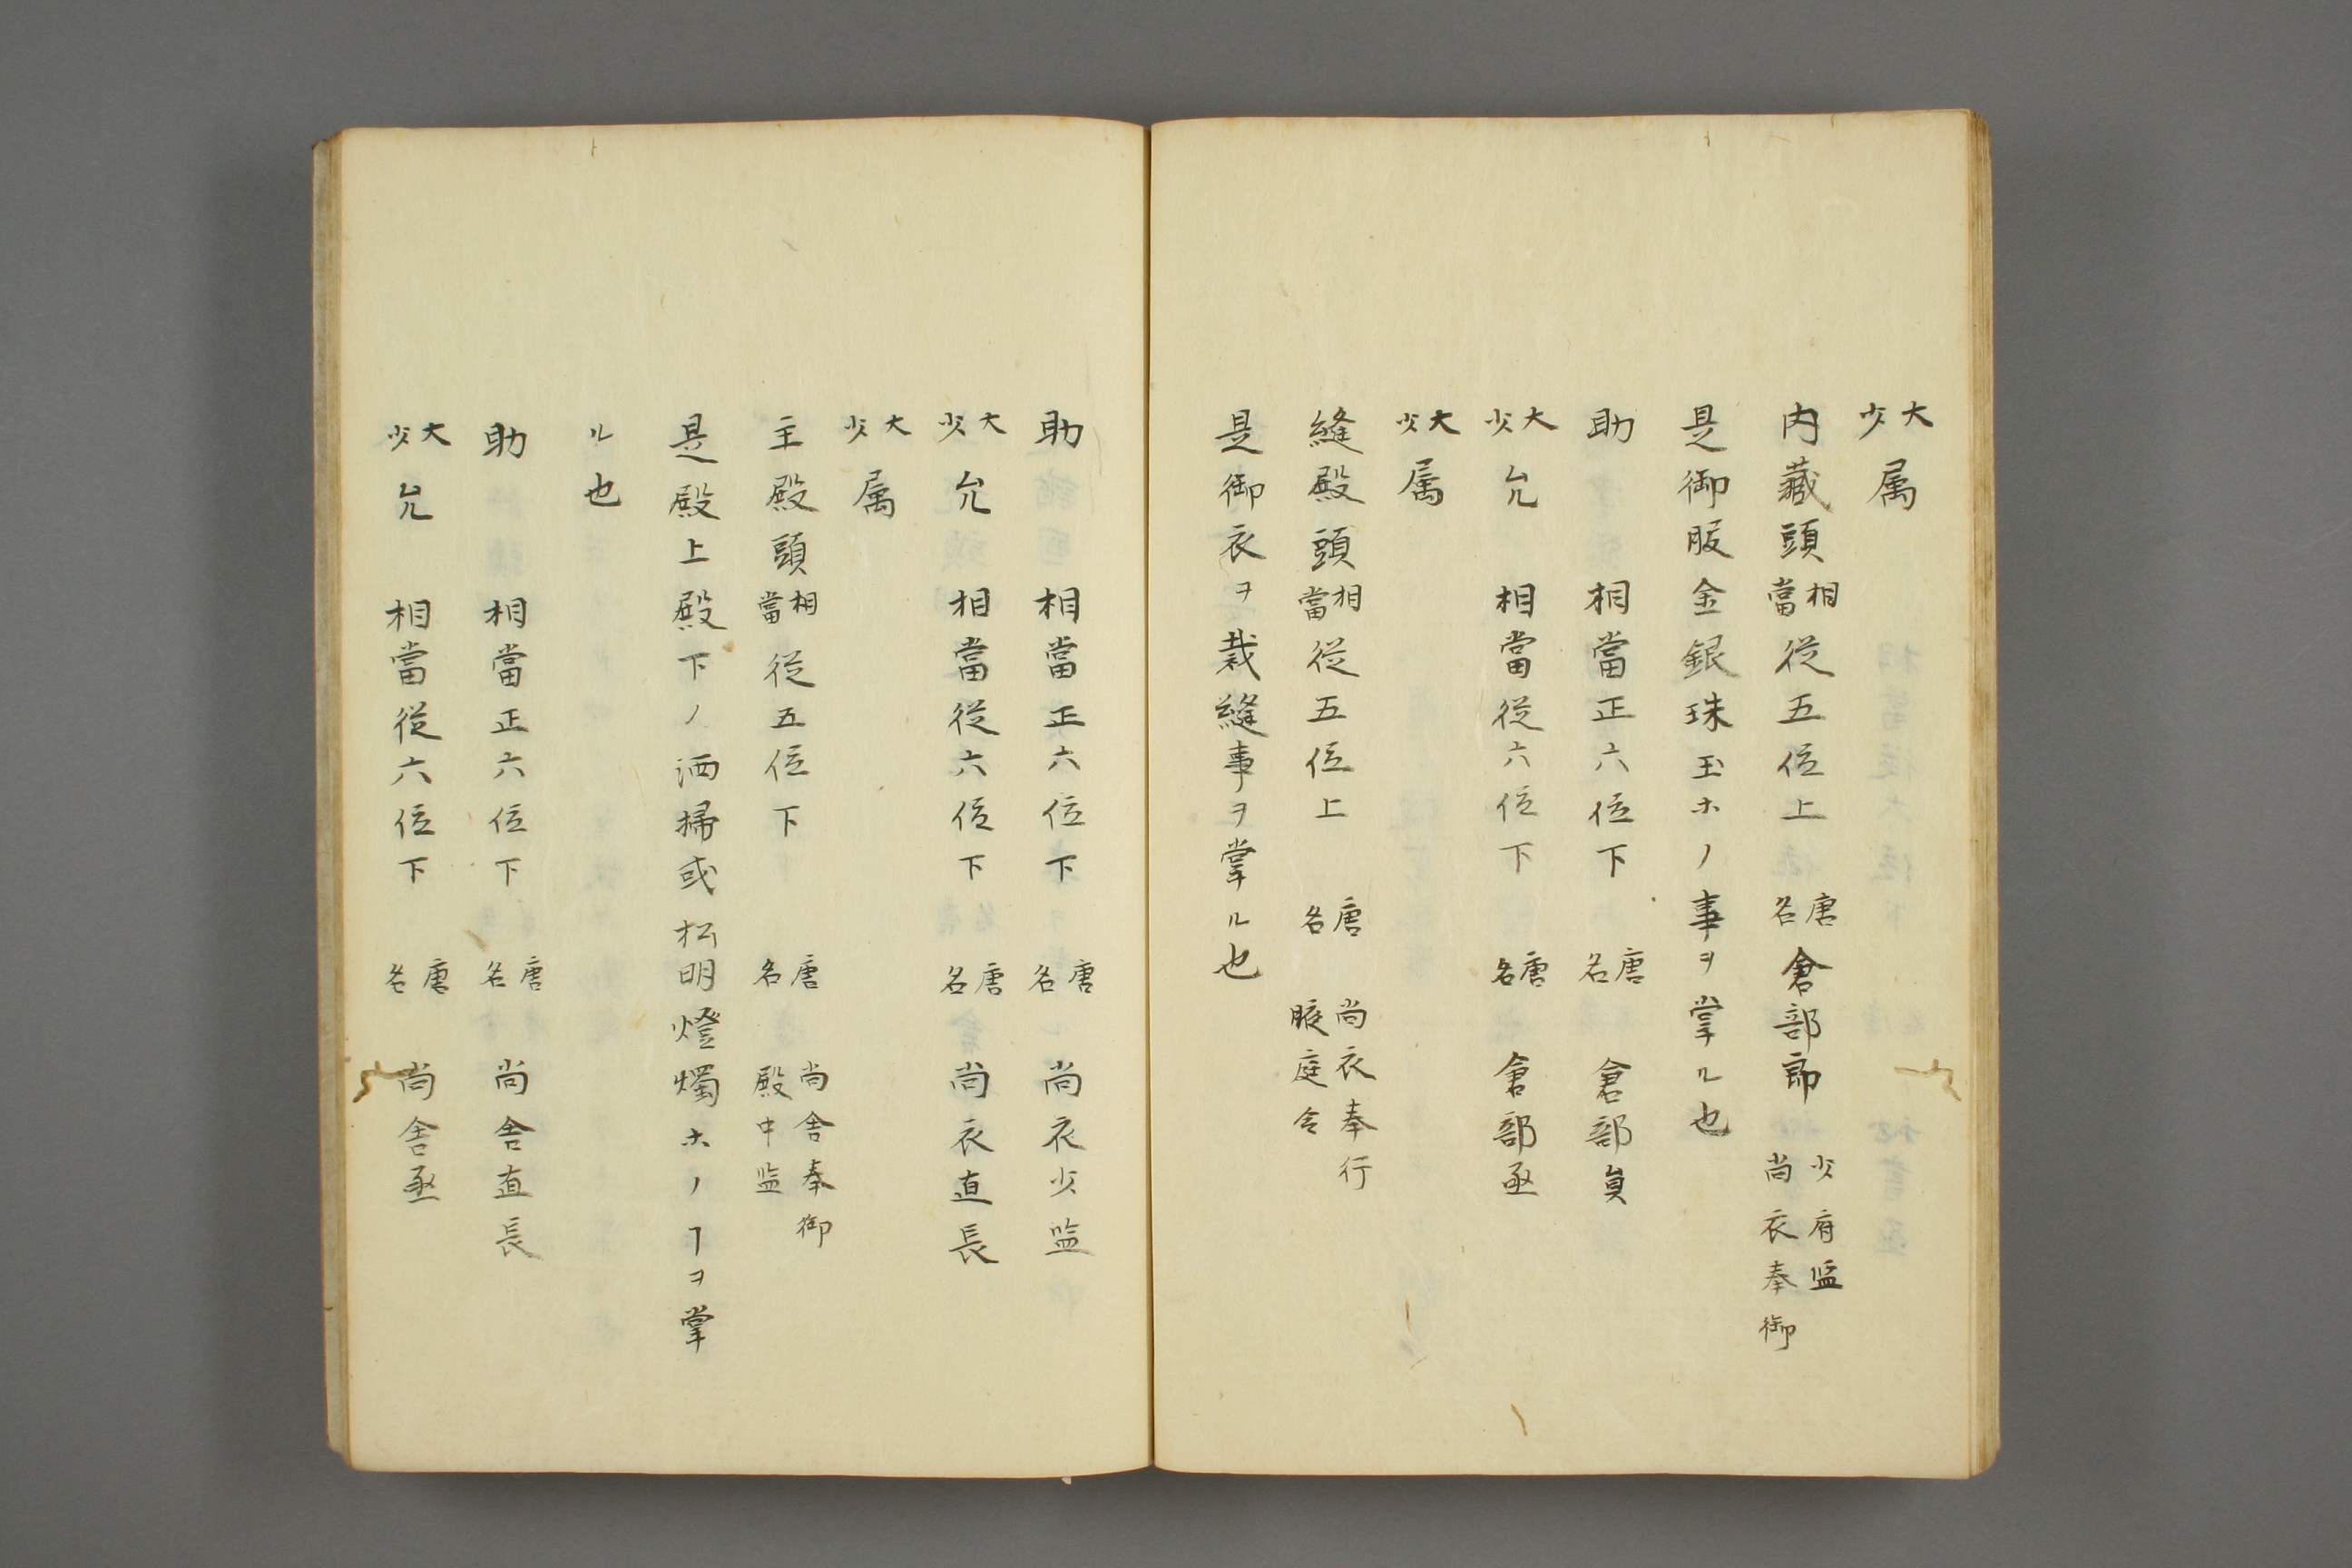 大少属
内藏頭相當従五位上 唐名倉部郎 少府监尚衣奉御
是御服金銀珠玉ホノ事ヲ掌ル也
助 相當正六位下 唐名 倉部員
大少允 相當従六位下 唐名 倉部丞
大少属
縫殿頭相當従五位上 唐名 尚衣奉行腋庭令
是御衣ヲ裁縫事ヲ掌ル也
助 相當正六位下 唐名 尚衣少监
大少允 相當従六位下 唐名 尚衣直長
大少属
主殿頭相當従五位下 唐名 尚舎奉御殿中监
是殿上殿下ノ洒掃或松明燈燭ホノヿヲ掌
ル也
助 相當正六位下 唐名 尚舎直長
大少允 相當従六位下 唐名 尚舎丞